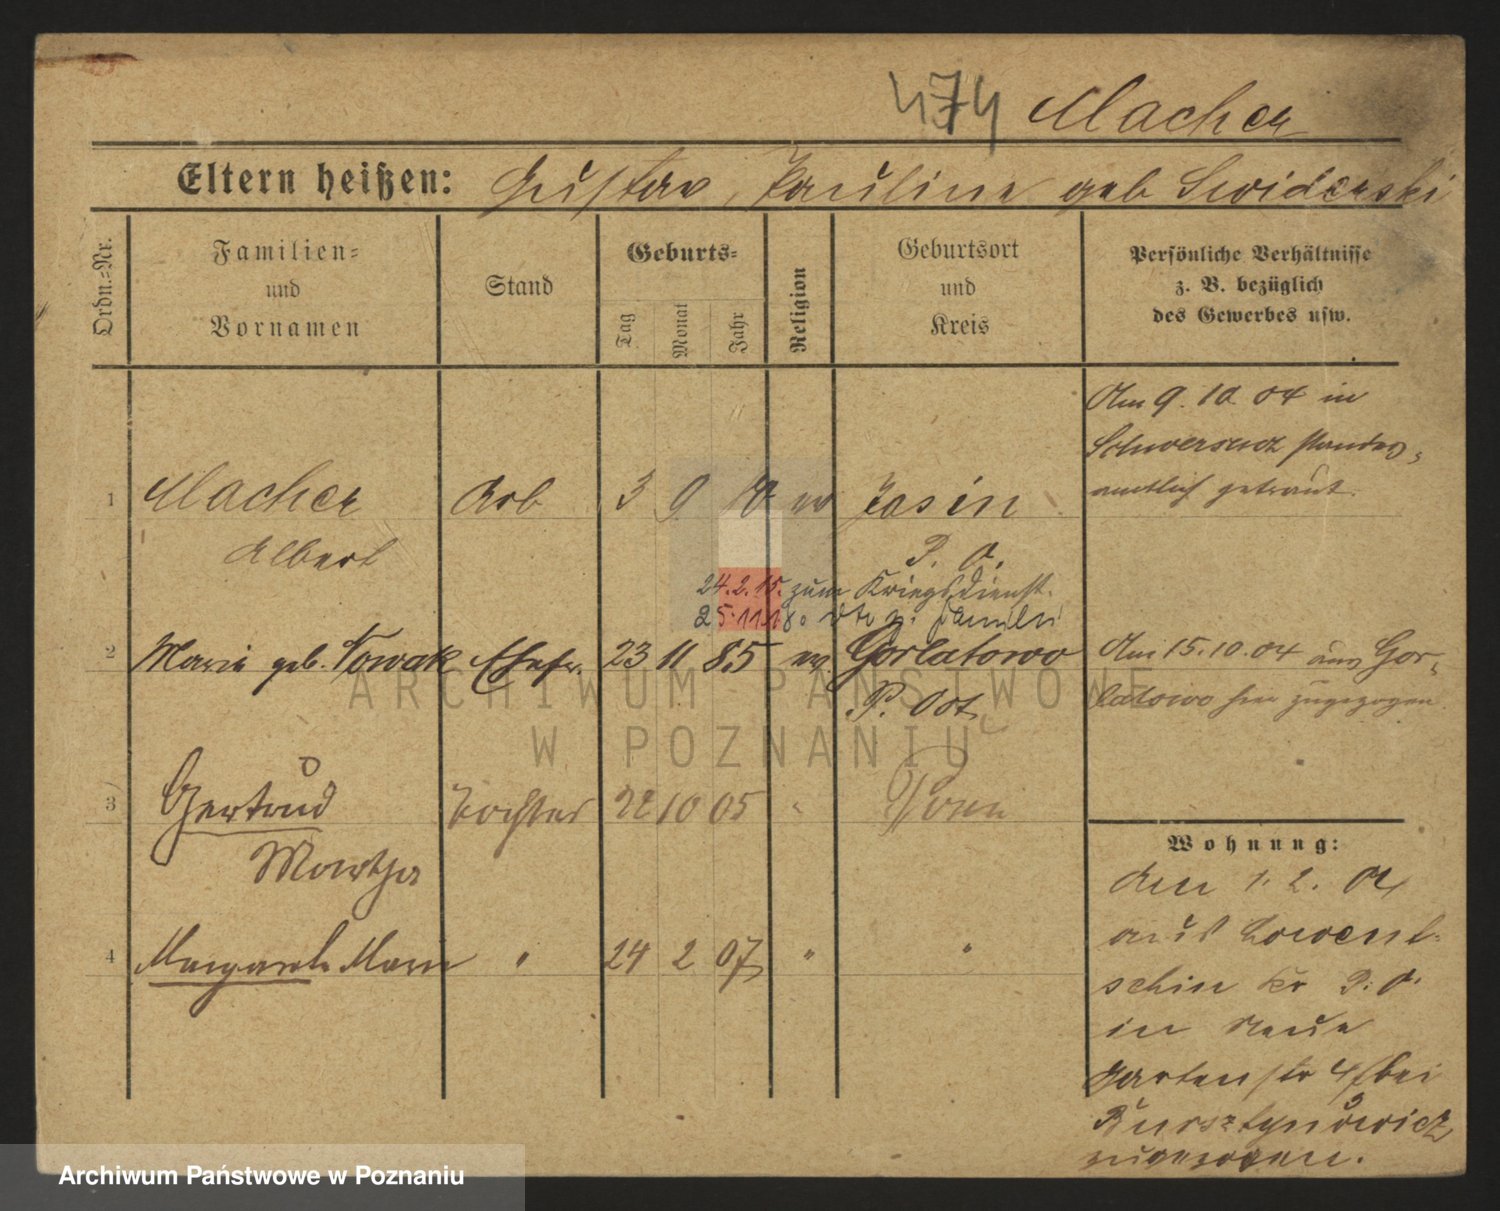 474 Macher
Eltern heißen: Gustav, Pauline geb Swiderski
Ordn.=Nr.
Familien=
und
Vornamen
Stand
Geburts=
Tag
Monat
Jahr
Religion
Geburtsort
und
Kreis
Persönliche Verhältnisse
z. B. bezüglich
des Gewerbes usw.
Am 9. 10 04 in
Schwersenz standes=
amtlich getraut.
1 Macher Arb 3 9 ev Jasin
Albert P. O.
24.2.15. zum Kriegsdienst.
25.11.18.
2 Marie geb. Nowak Ehefr. 23 11 85 ev Gorlatowo
P. Ost
Am 15.10.04 aus Gor=
latowo hier zugezogen
3 Gertrud Tochter 22 10 05 " Posen
Martha
4 Margarete Marie " 24 2 07 " "
Wohnung:
Am 1. 2. 04
aus Lowent=
schin Kr P. O.
in Neue
Gartenstr 4 bei
Bursztynowicz
zugezogen.
ARCHIWUM PAŃSTWOWE
W POZNANIU
Archiwum Państwowe w Poznaniu